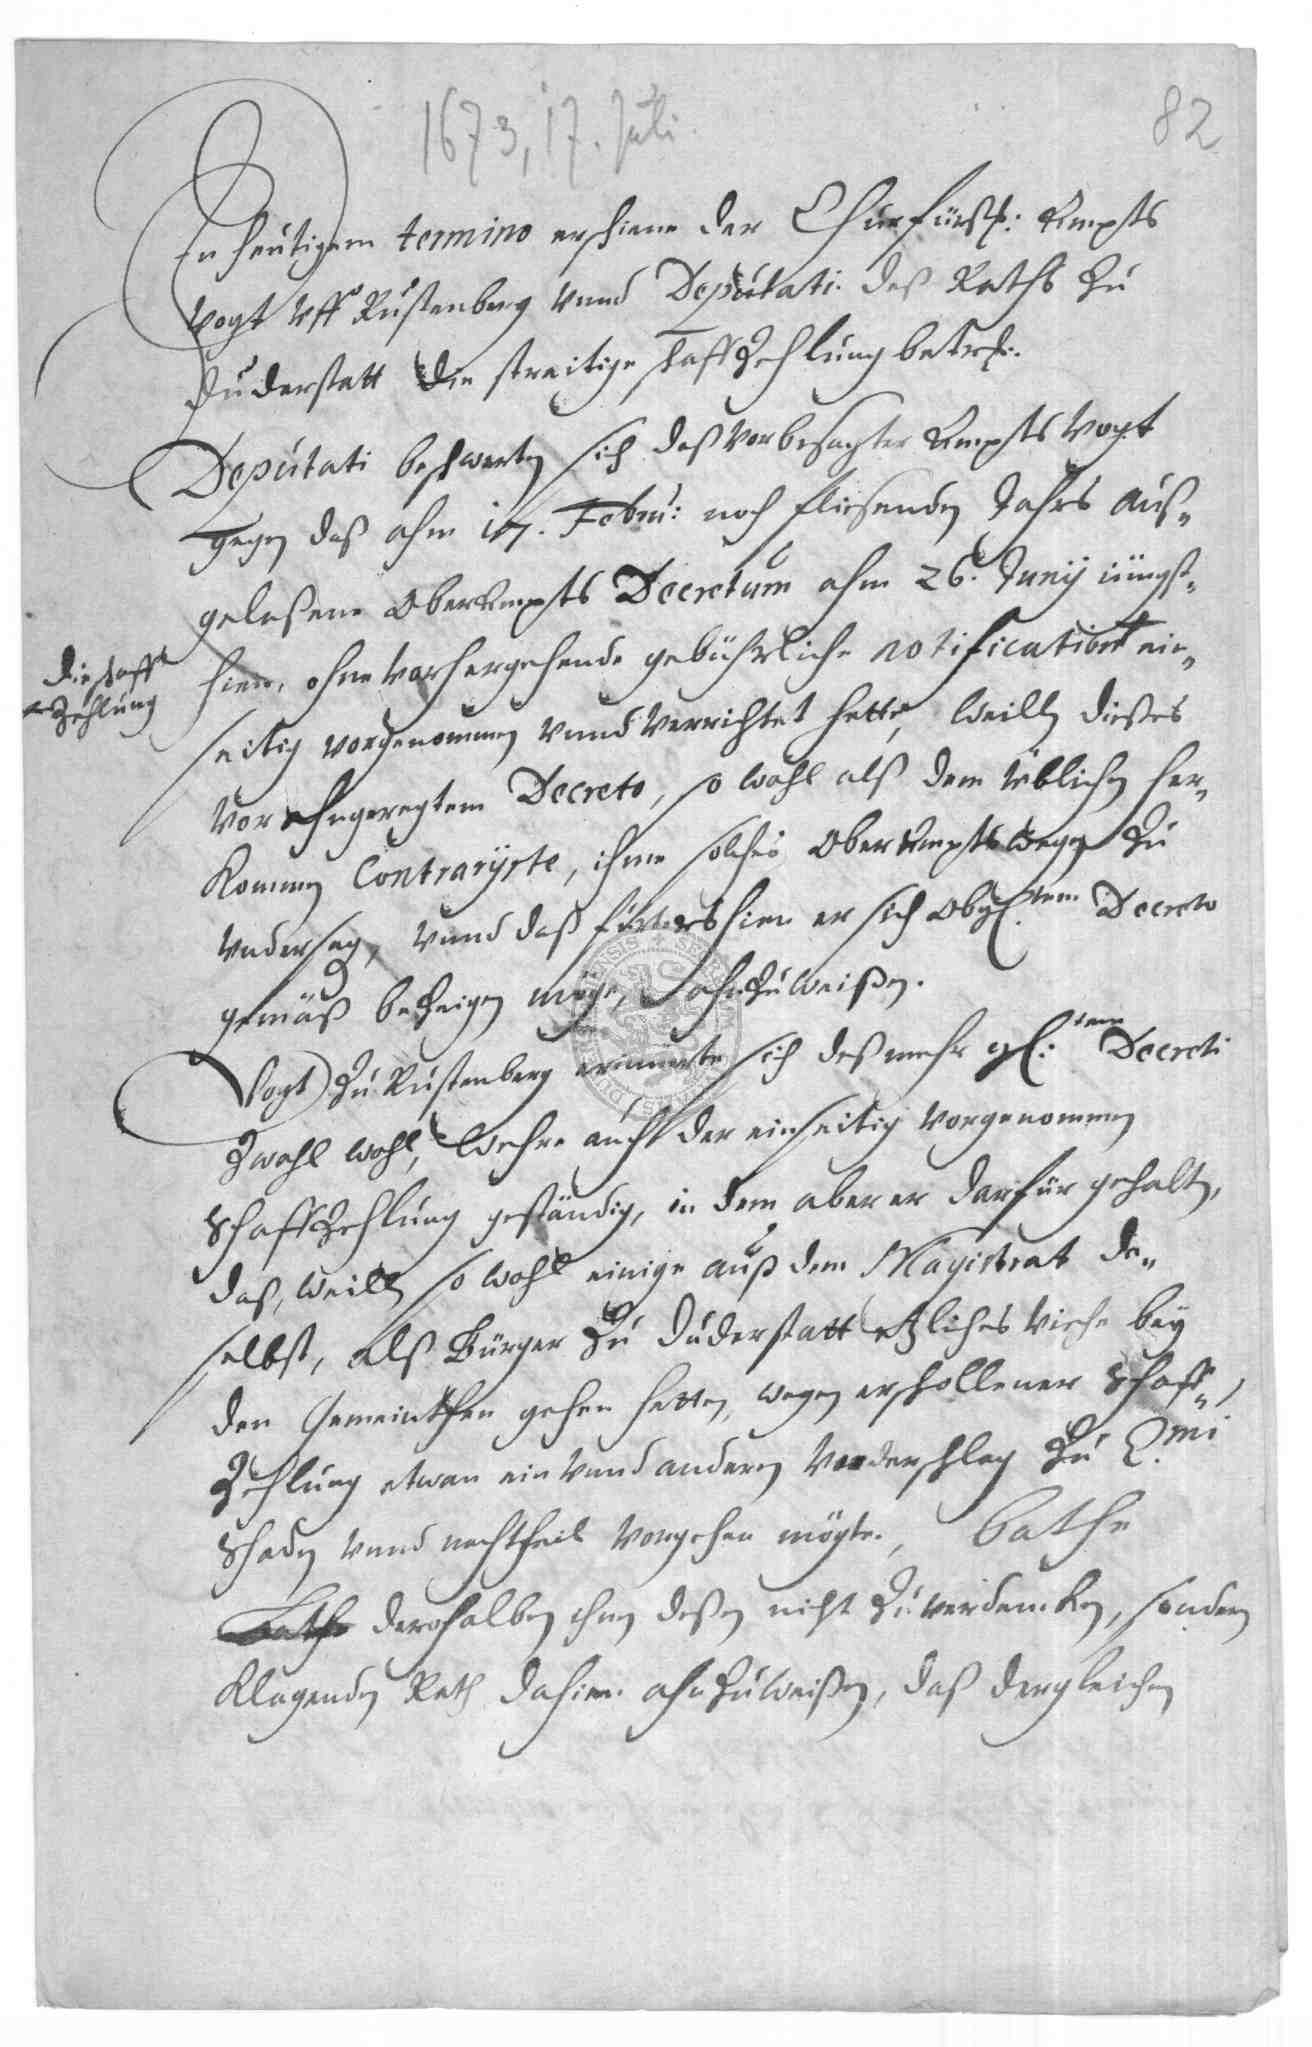 1673, 17. Juli.
82
In heutigem termino erschiene der Churfürstl. Ampts
Vogt uff Rustenberg vnnd Deputati deß Raths zu
Duderstatt die streitige schaffzehlung betrf.
Deputati beschwerten sich daß vorbesagter Ampts Vogt
gegen daß ahm 17. Febru: noch fliesenden Jahrs auß„
gelaßene OberAmpts Decretum ahm 26. Junij iüngst„
hien, ohne vorhergehende gebührliche notification ein„
die schaff
Zehlung
seitig vorgenommen vnnd verrichtet hette, weilln dießes
vor ahngeregtem Decreto, so wohl alß dem üblichen her„
kommen contrarijrte, ihme solches OberAmpts wegen zu
vndersagen, vnnd daß fürtershien er sich obgl.tem Decreto
gemäß bezeigen möge, ahnzuweißen.
Vogt zu Rustenberg erinnerte sich deß mehr gl:tem Decreti
zwahl wohl, wehre auch der einseitig vorgenommen
schaffzehlung geständig, in dem aber er darfür gehalten,
daß, weilln so wohl einige auß dem Magistrat da„
selbst, alß Bürger zu Duderstatt etzliches Viehe bey
den Gemeinthen gehen hetten, wegen erschollener schaff„
zehlung etwan ein vnnd anderen vnderschlag zu E.mi
schaden vnnd nachtheil vorgehen mögte, bathe
bathe derohalben ihm deßen nicht zuverdencken, sondern
klagenden Rath dahien ahnzuweißen, daß dergleichen